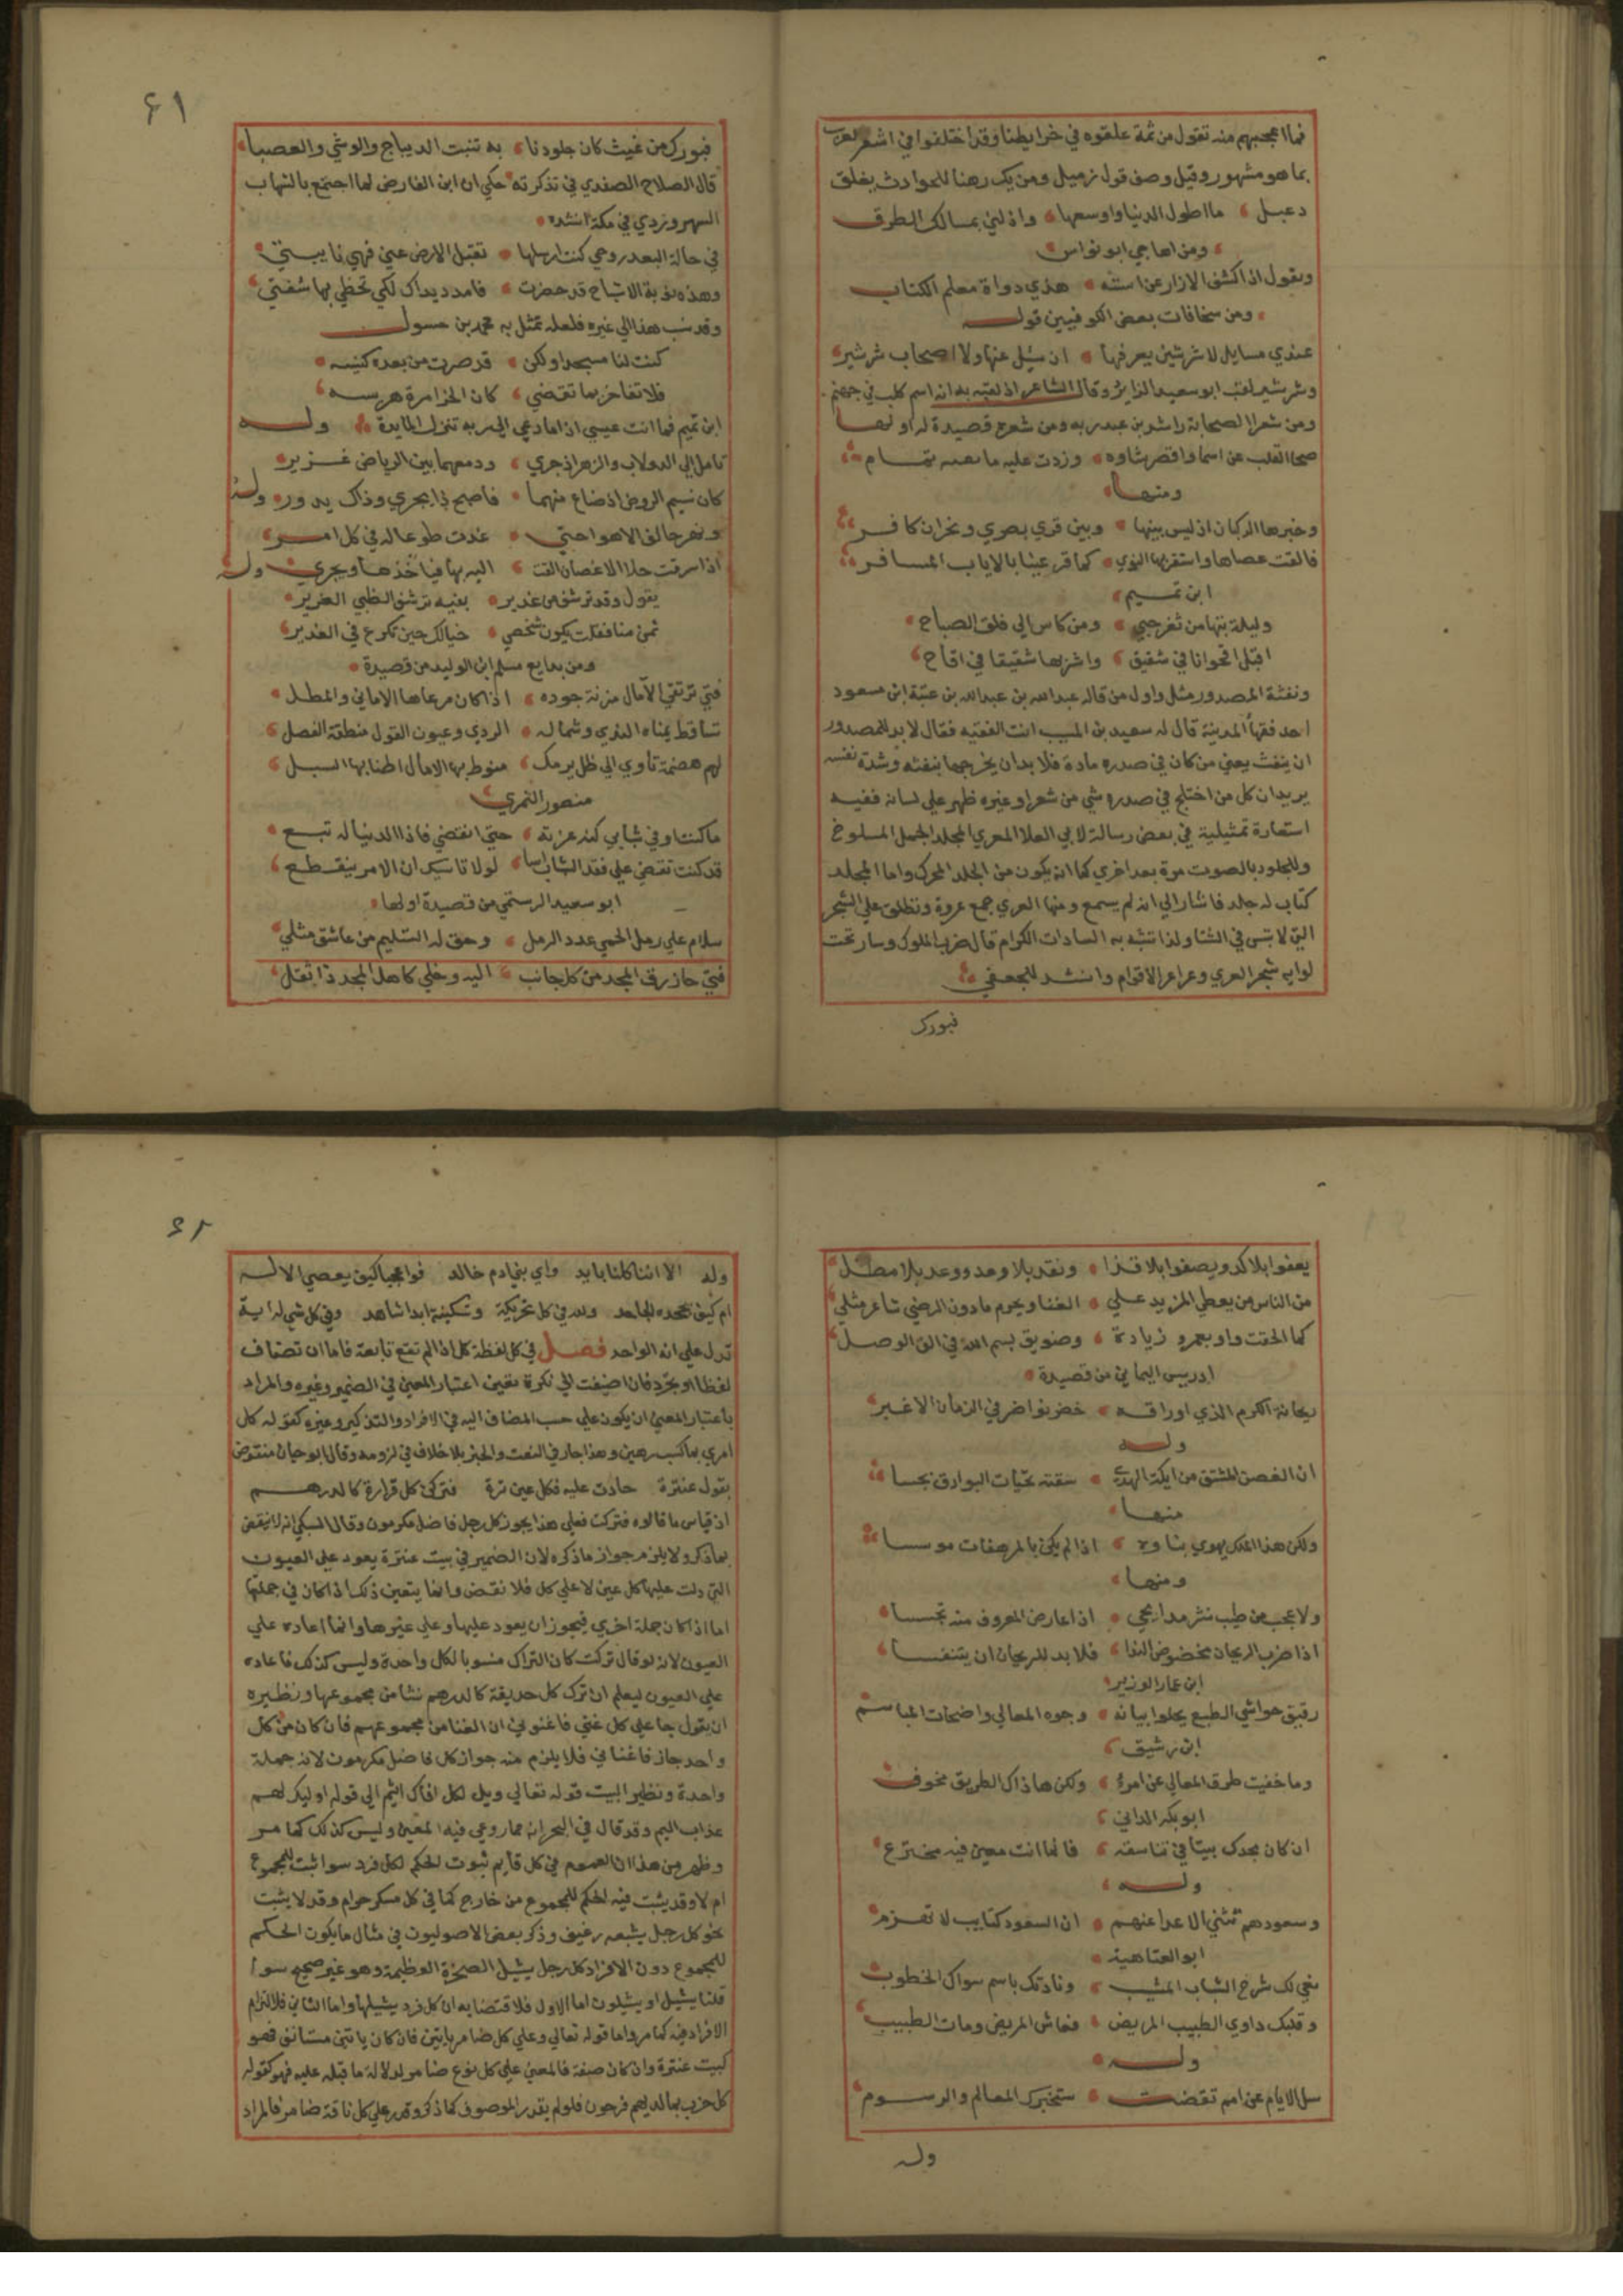 فما اعجبهم منه تقول من ثمة علقوه في خرايطنا وقد اختلفوا في اشعر العرب
بما هو مشهور وقيل وصف قول زميل ومن يك رهنا للحوادث يغلق
دعبل ما اطول الدنيا واوسعها واذلني بمسالك الطرق
ومن اهاجي ابو نواس
ويقول اذ اكشف الازار عن استه هذي دواة معلم الكتاب
ومن سخافات بعض الكوفيين قوله
عندي مسايل لا شرشير يعرفها ان سيل عنها ولا اصحاب شرشير
وشرشير لقب ابو سعيد الرايز وقال الشاعر اذ لقبه به انه اسم كلب في جهنم
ومن شعرا الصحابة راشد بن عبد ربه ومن شعره قصيدة له اولها
صحا القلب عن اسما واقصر شاوه وزدت عليه ما بعنه تمام
ومنها
وخبرها الركبان اذ ليس بينها وبين قري بصري ونجران كافر
فالقت عصاها واستقر بها النوي كما قر عينا بالاياب المسافر
ابن تميم
وليلة بتها من ثغر حبي ومن كاس الي فلق الصباح
اقبل اقحوانا في شقيق واشربها شقيقا في اقاح
ونفثة المصدور مثل واول من قاله عبد الله بن عبد الله بن عتبة ابن مسعود
احد فقها المدينة قال له سعيد بن المسيب انت الفقيه فقال لا بد للمصدور
ان ينفث يعني من كان في صدره مادة فلا بد ان يخرجها بنفثه وشدة نفسه
يريد ان كل من اختلج في صدره شي من شعر او غيره ظهر علي لسانه ففيه
استعارة تمثيلية في بعض رسالة لابي العلا المعري المجلد الجمل المسلوخ
والمجلود بالصوت مرة بعد اخري كما انه يكون من الجلد المحرك واما المجلد
كتاب له جلد فاشار الي انه لم يسمع ومنها العري جمع عروة وتطلق علي الشجر
التي لا تيبس في الشتا ولذا تشبه به السادات الكرام قال ضرب الملوك وسار تحت
لوايه شجر العري وعراعر الاقوام وانشد للجعفي
فبورك
٤١
فبورك من غيث كان جلودنا به تنبت الديباج والوشي والعصبا
قال الصلاح الصفدي في تذكرته حكي ان ابن الفارض لما اجتمع بالشهاب
السهروردي في مكة انشده
في حالة البعد روحي كنت ارسلها تقبل الارض عني فهي نايبتي
وهذه نوبة الاشباح قد حضرت فامدد يداك لكي تحظي بها شفتي
وقد نسب هذا الي غيره فلعله تمثل به محمد بن عسول
كنت لنا مسجدا ولكن قد صرت من بعده كنيسه
فلا تفاخر بما تقضي كان الخرا مرة هريسه
ابن تميم فما انت عيسي اذا ما دعي الي ربه تنزل المايدة وله
تامل الي الدولاب والزهر اذ جري ودمعهما بين الرياض غزير
كان نسيم الروض اذ ضاع منهما فاصبح ذا يجري وذاك يدور وله
ونهر حالف الاهوا حتي غدت طوعا له في كل امر
اذا سرقت حلا الاغصان القت اليه بها فياخذها ويجري وله
يقول وقد ترشف من غدير بفيه ترشف الظبي الغرير
ثمن منا فقلت يكون شخصي خيالك حين تكرع في الغدير
ومن بدايع مسلم ابن الوليد من قصيدة
فتي ترتقي الآمال مزنة جوده اذا كان مرعاها الاماني والمطل
تساقط يمناه الندي وشماله الردي وعيون القول منطقه الفصل
لهم هضمة تاوي الي ظل برمك منوط بها الامال اطنابها السبل
منصور النمري
ما كنت اوفي شبابي كنه عزته حتي انقضي فاذا الدنيا له تبع
قد كنت تقضي علي فقد الشباب اسا لولا تاسيك ان الامر ينقطع
ابو سعيد الرستمي من قصيدة اولها
سلام علي رمل الحمي عدد الرمل وحق له التسليم من عاشق مثلي
فتي حاز رق المجد من كل جانب اليه وخلي كاهل المجد ذا ثقل
يعفوا بلا كد ويصفوا بلا قذا ونقد بلا وعد ووعد بلا مطل
من الناس من يعطي المزيد علي الغنا ويحرم ما دون الرضي شاعر مثلي
كما الحقت واو بعمرو زيادة وضويق بسم الله في الف الوصل
ادريس اليماني من قصيدة
ريحانة الكرم الذي اوراقه خضر نواضر في الزمان الاغبر
وله
ان الغصن المشتق من ايكة الهدي سقته تحيات البوارق بحسا
منها
ولكن هذا الملك يهوي بناوه اذا لم يكن بالمرهفات موسسا
ومنها
ولا عجب من طيب نشر مدايحي اذا عارض المعروف منه تجسسا
اذا ضرب الريحان مخضوض الندا فلا بد للريحان ان يتنفسا
ابن عمار الوزير
رقيق حواشي الطبع يجلوا بيانه وجوه المعالي واضحات المباسم
ابن رشيق
وما خفيت طرق المعالي عن امرء ولكن هاذاك الطريق مخوف
ابو بكر الداني
ان كان مجدك بيتا في تناسقه فانما انت معني فيه مخترع
وله
وسعودهم تثني الاعدا عنهم ان السعود كتايب لا تهزم
ابو العتاهية
نعي لك شرخ الشباب المشيب ونادتك باسم سواك الخطوب
وقبلك داوي الطبيب المريض فعاش المريض ومات الطبيب
وله
سل الايام عن امم تقضت ستخبرك المعالم والرسوم
وله
٤٢
وله الا اننا كلنا بايد واي بني ادم خالد فواعجبا كيف يعصي الاله
ام كيف يجحده الجاحد ولله في كل تحريكة وتسكينة ابدا شاهد وفي كل شي له اية
تدل علي انه الواحد فصل في كل لفظة كل اذا لم تقع تابعة فاما ان تضاف
لفظا او تجرد فان اضيفت الي نكرة تعين اعتبار المعني في الضمير وغيره والمراد
باعتبار المعني ان يكون علي حسب المضاف اليه في الافراد والتذكير وغيره كقوله كل
امري بما كسب رهين وهذا جار في النعت والخبر بلا خلاف في لزومه وقال ابو حيان منقوض
بقول عنترة جادت عليه فكل عين ثرة فتركن كل قرارة كالدرهم
اذ قياس ما قالوه فتركت فعلي هذا يجوز كل رجل فاضل مكرمون وقال السبكي انه لا ينقض
بما ذكر ولا يلزم جواز ما ذكره لان الضمير في بيت عنترة يعود علي العيون
التي دلت عليها كل عين لا علي كل فلا نقض وانما يتعين ذلك اذا كان في جملتها
اما اذا كان جملة اخري فيجوز ان يعود عليها وعلي غيرها وانما اعاده علي
العيون لانه لو قال تركت كان التراك منسوبا لكل واحدة وليس كذلك فاعاده
علي العيون ليعلم ان ترك كل حديقة كالدرهم نشا من مجموعها ونظيره
ان يقول جا علي كل غني فاغنوني ان الغنا من مجموعهم فان كان من كل
واحد جاز فاغناني فلا يلزم منه جواز كل فاضل مكرمون لانه جملة
واحدة ونظير البيت قوله تعالي ويل لكل افاك اثيم الي قوله اوليك لهم
عذاب اليم وقد قال في البحر انه مما روعي فيه المعني وليس كذلك كما مر
وظهر من هذا ان العموم في كل قايم ثبوت الحكم لكل فرد سوا ثبت للمجموع
ام لا وقد يثبت فيه الحكم للمجموع من خارج كما في كل مسكر حرام وقد لا يثبت
نحو كل رجل يشبعه رغيف وذكر بعض الاصوليون في مثال ما يكون الحكم
للمجموع دون الافراد كل رجل يشيل الصخرة العظيمة وهو غير صحيح سوا
قلنا يشيل او يشيلون اما الاول فلاقتضايه ان كل فرد يشيلها واما الثاني فلالتزام
الافراد فيه كما مر واما قوله تعالي وعلي كل ضامر ياتين فان كان ياتين مستانف فهو
كبيت عنترة وان كان صفة فالمعني علي كل نوع ضامر لدلالة ما قبله عليه فهو كقوله
كل حزب بما لديهم فرحون فلو لم يقدر الموصوف كما ذكر وقدر علي كل ناقة ضامر فالمراد